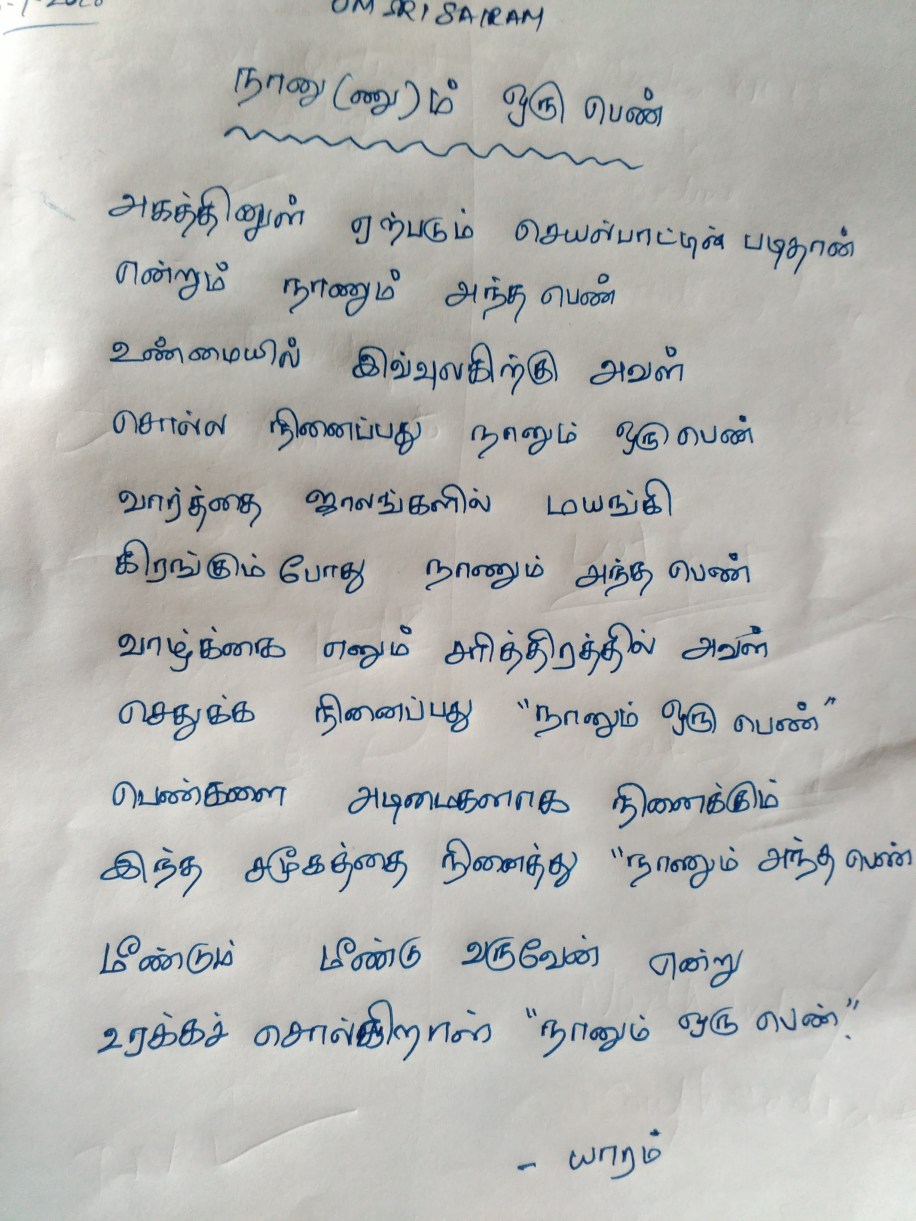 OM SRI SAIRAM
நானு(ணு)ம் ஒரு பெண்
அகத்தினுள் ஏற்படும் செயல்பாட்டின் படிதான்
என்றும் நாணும் அந்த பெண்
உண்மையில் இவ்வுலகிற்கு அவள்
சொல்ல நினைப்பது நானும் ஒரு பெண்
வார்த்தை ஜாலங்களில் மயங்கி
கிரங்கும் போது நாணும் அந்த பெண்
வாழ்க்கை எனும் சரித்திரத்தில் அவள்
செதுக்க நினைப்பது "நானும் ஒரு பெண்"
பெண்களை அடிமைகளாக நினைக்கும்
இந்த சமூகத்தை நினைத்து "நாணும் அந்த பெண்
மீண்டும் மீண்டு வருவேன் என்று
உரக்கச் சொல்கிறாள் "நானும் ஒரு பெண்".
- யாரம்